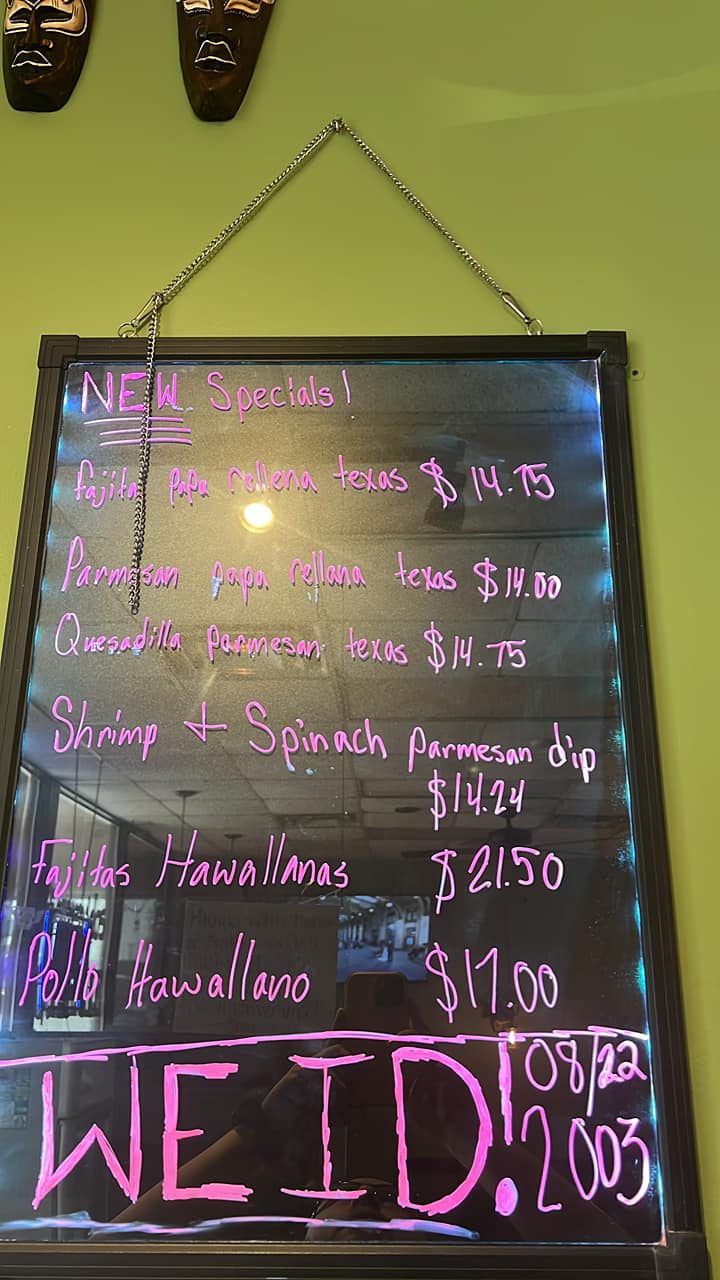 NEW Specials!
fajita papa rellena texas $14.75
Parmesan papa rellana texas $14.00
Quesadilla parmesan texas $14.75
Shrimp + Spinach parmesan dip
$14.24
Fajitas Hawallanas $21.50
Pollo Hawallano $17.00
WE ID! 08/22
2003